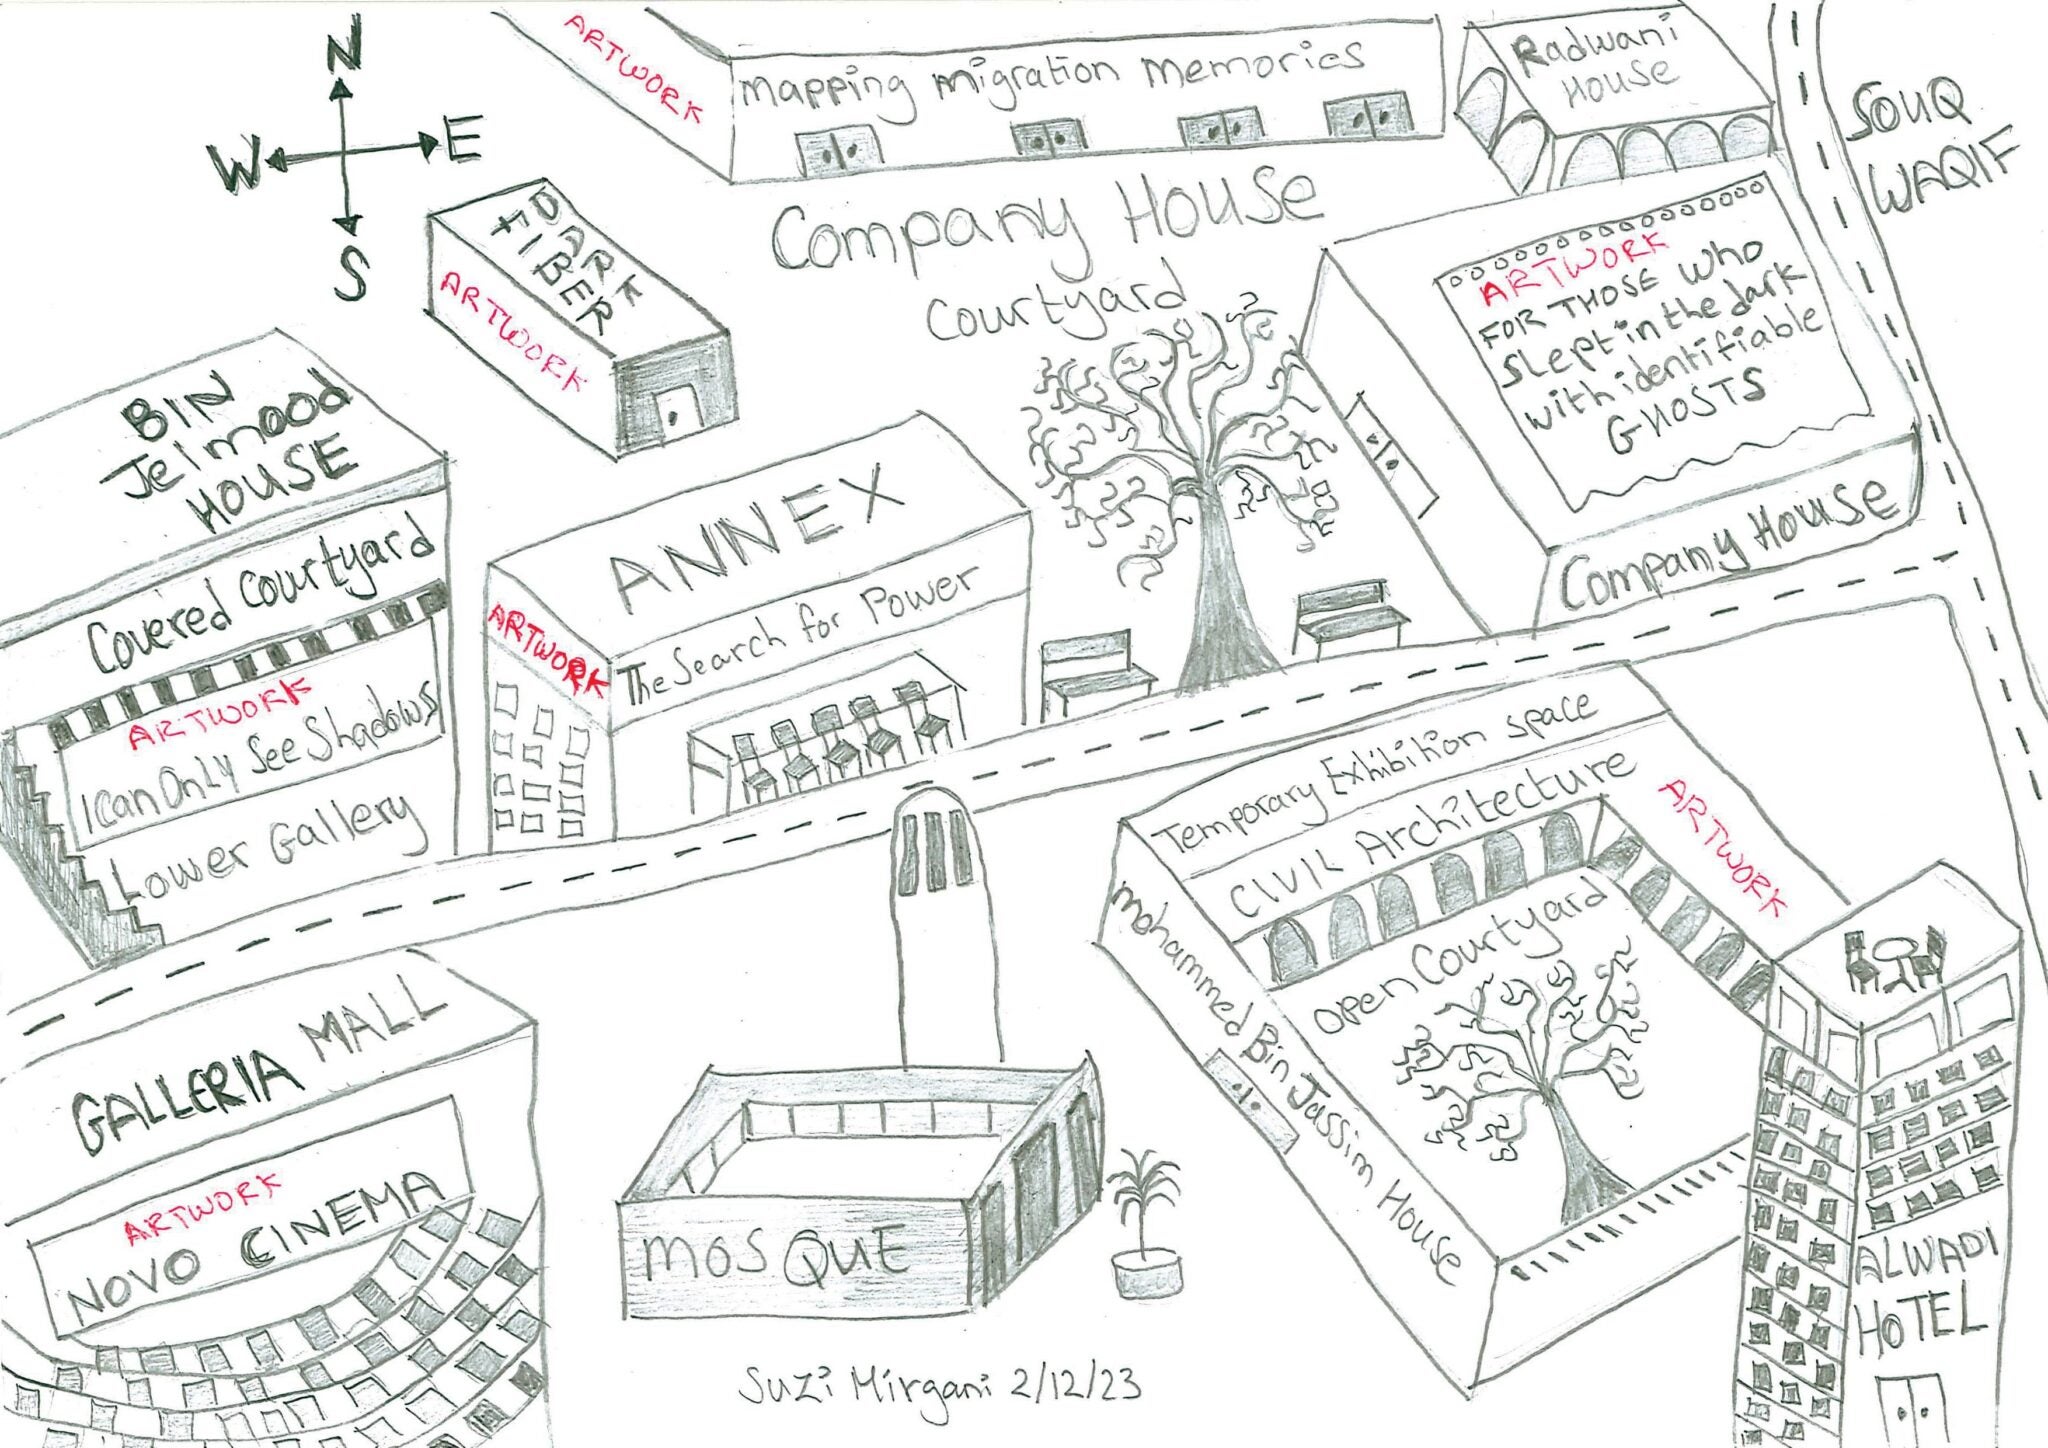 N
W
E
S
ARTWORK
mapping migration memories
Company House
Courtyard
Radwani
House
SOUQ
WAQIF
DARK
FIBER
ARTWORK
ARTWORK
FOR THOSE WHO
slept in the dark
with identifiable
GHOSTS
Company House
BIN
Jelmood
HOUSE
Covered Courtyard
ARTWORK
I Can Only See Shadows
Lower Gallery
ANNEX
ARTWORK
The Search for Power
Temporary Exhibition space
CIVIL Architecture
ARTWORK
Open Courtyard
Mohammed Bin Jassim House
GALLERIA MALL
ARTWORK
NOVO CINEMA
MOSQUE
ALWADI
HOTEL
Suzi Mirgani 2/12/23